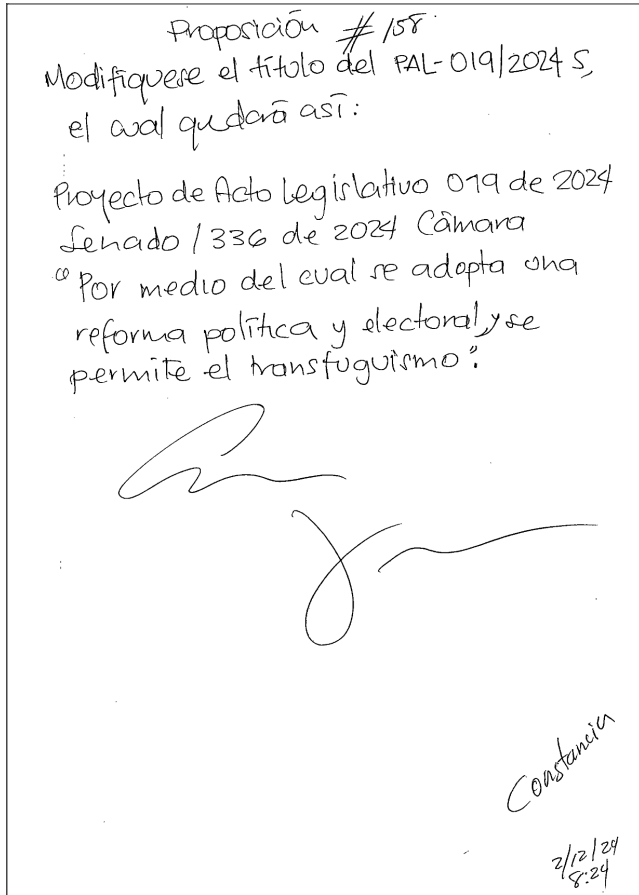 Proposición #158
Modifiquese el título del PAL-019/2024 S,
el cual qudará así:
Proyecto de Acto Legislativo 019 de 2024
Senado / 336 de 2024 Cámara
"Por medio del cual se adopta una
reforma política y electoral, y se
permite el transfuguismo".
Constancia
2/12/24
8:24